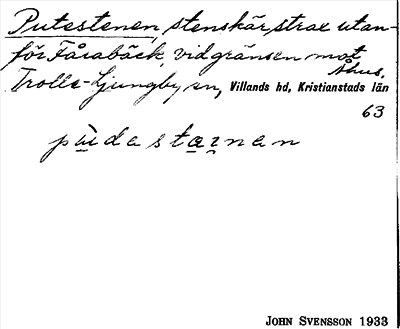 Putestenen, stenskär strax utan-
för Fårabäck, vid gränsen mot
Åhus.
Trolle-Ljungby sn, Villands hd, Kristianstads län
63
pu̱̇dasta̱i̱nan
JOHN SVENSSON 1933